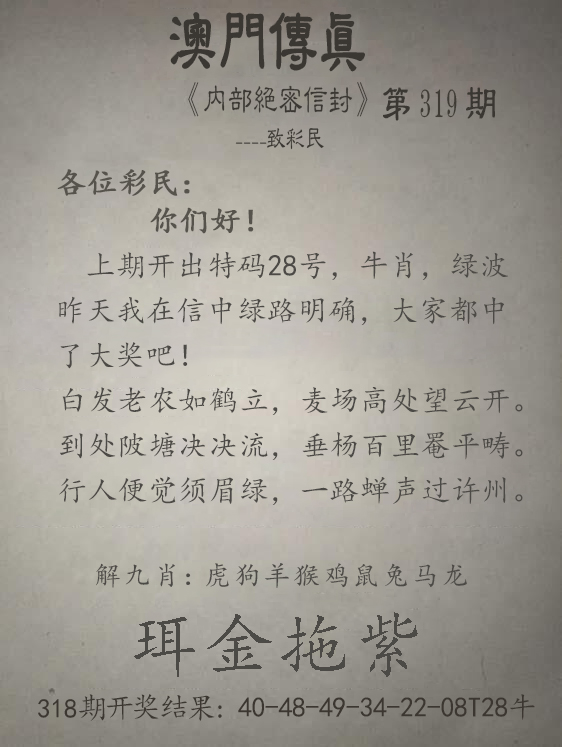 澳門傳眞
《内部絕密信封》第319期
----致彩民
各位彩民：
你们好！
上期开出特码28号，牛肖，绿波
昨天我在信中绿路明确，大家都中
了大奖吧！
白发老农如鹤立，麦场高处望云开。
到处陂塘决决流，垂杨百里罨平畴。
行人便觉须眉绿，一路蝉声过许州。
解九肖：虎狗羊猴鸡鼠兔马龙
珥金拖紫
318期开奖结果：40-48-49-34-22-08T28牛